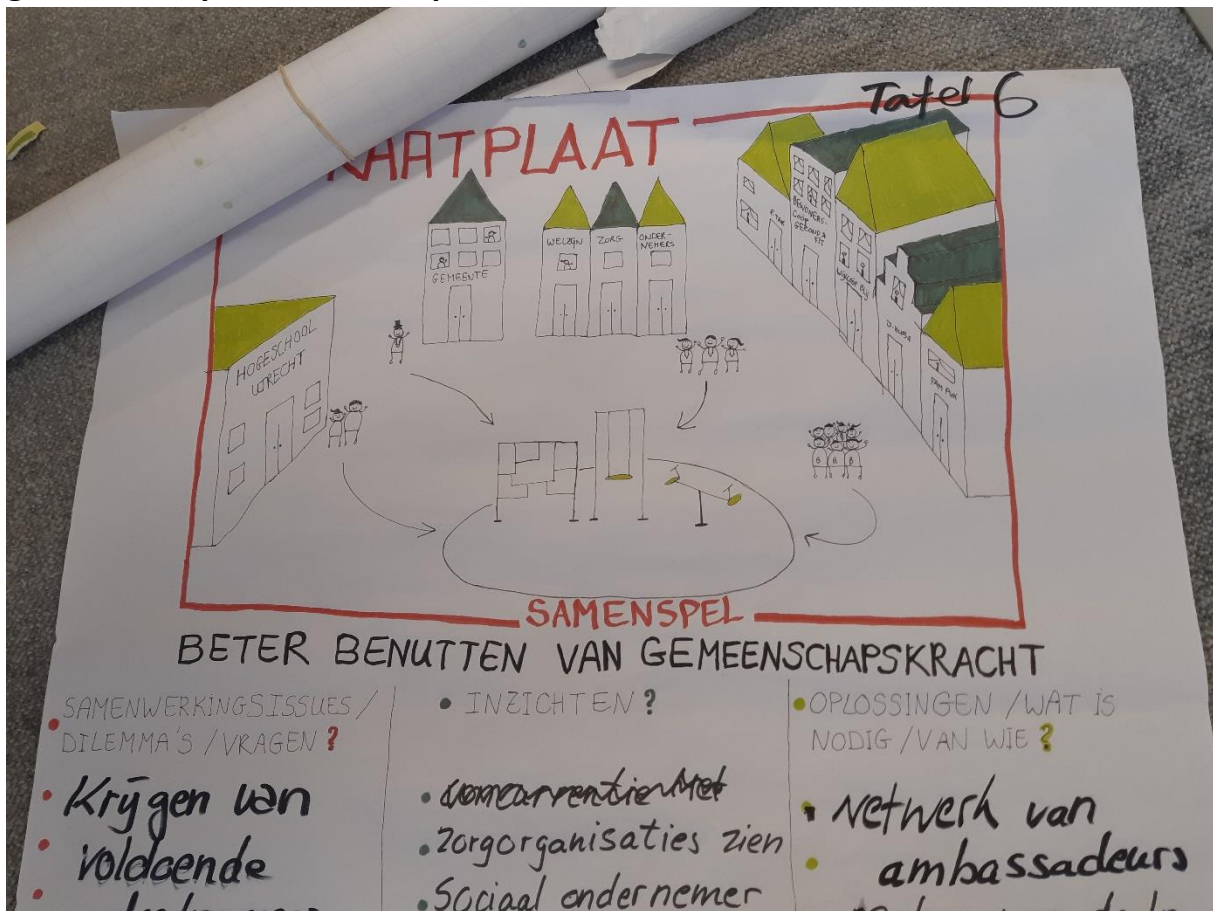 Tafel 6
AATPLAAT
WELZIJN
ZORG
ONDER-
NEMERS
GEMEENTE
HOGESCHOOL
UTRECHT
BEWONERS-
SAMENSPEL
BETER BENUTTEN VAN GEMEENSCHAPSKRACHT
• SAMENWERKINGSISSUES /
DILEMMA'S / VRAGEN ?
• Krijgen van
• voldoende
• INZICHTEN ?
• Zorgorganisaties zien
• Sociaal ondernemer
• OPLOSSINGEN / WAT IS
NODIG / VAN WIE ?
• Netwerk van
• ambassadeurs